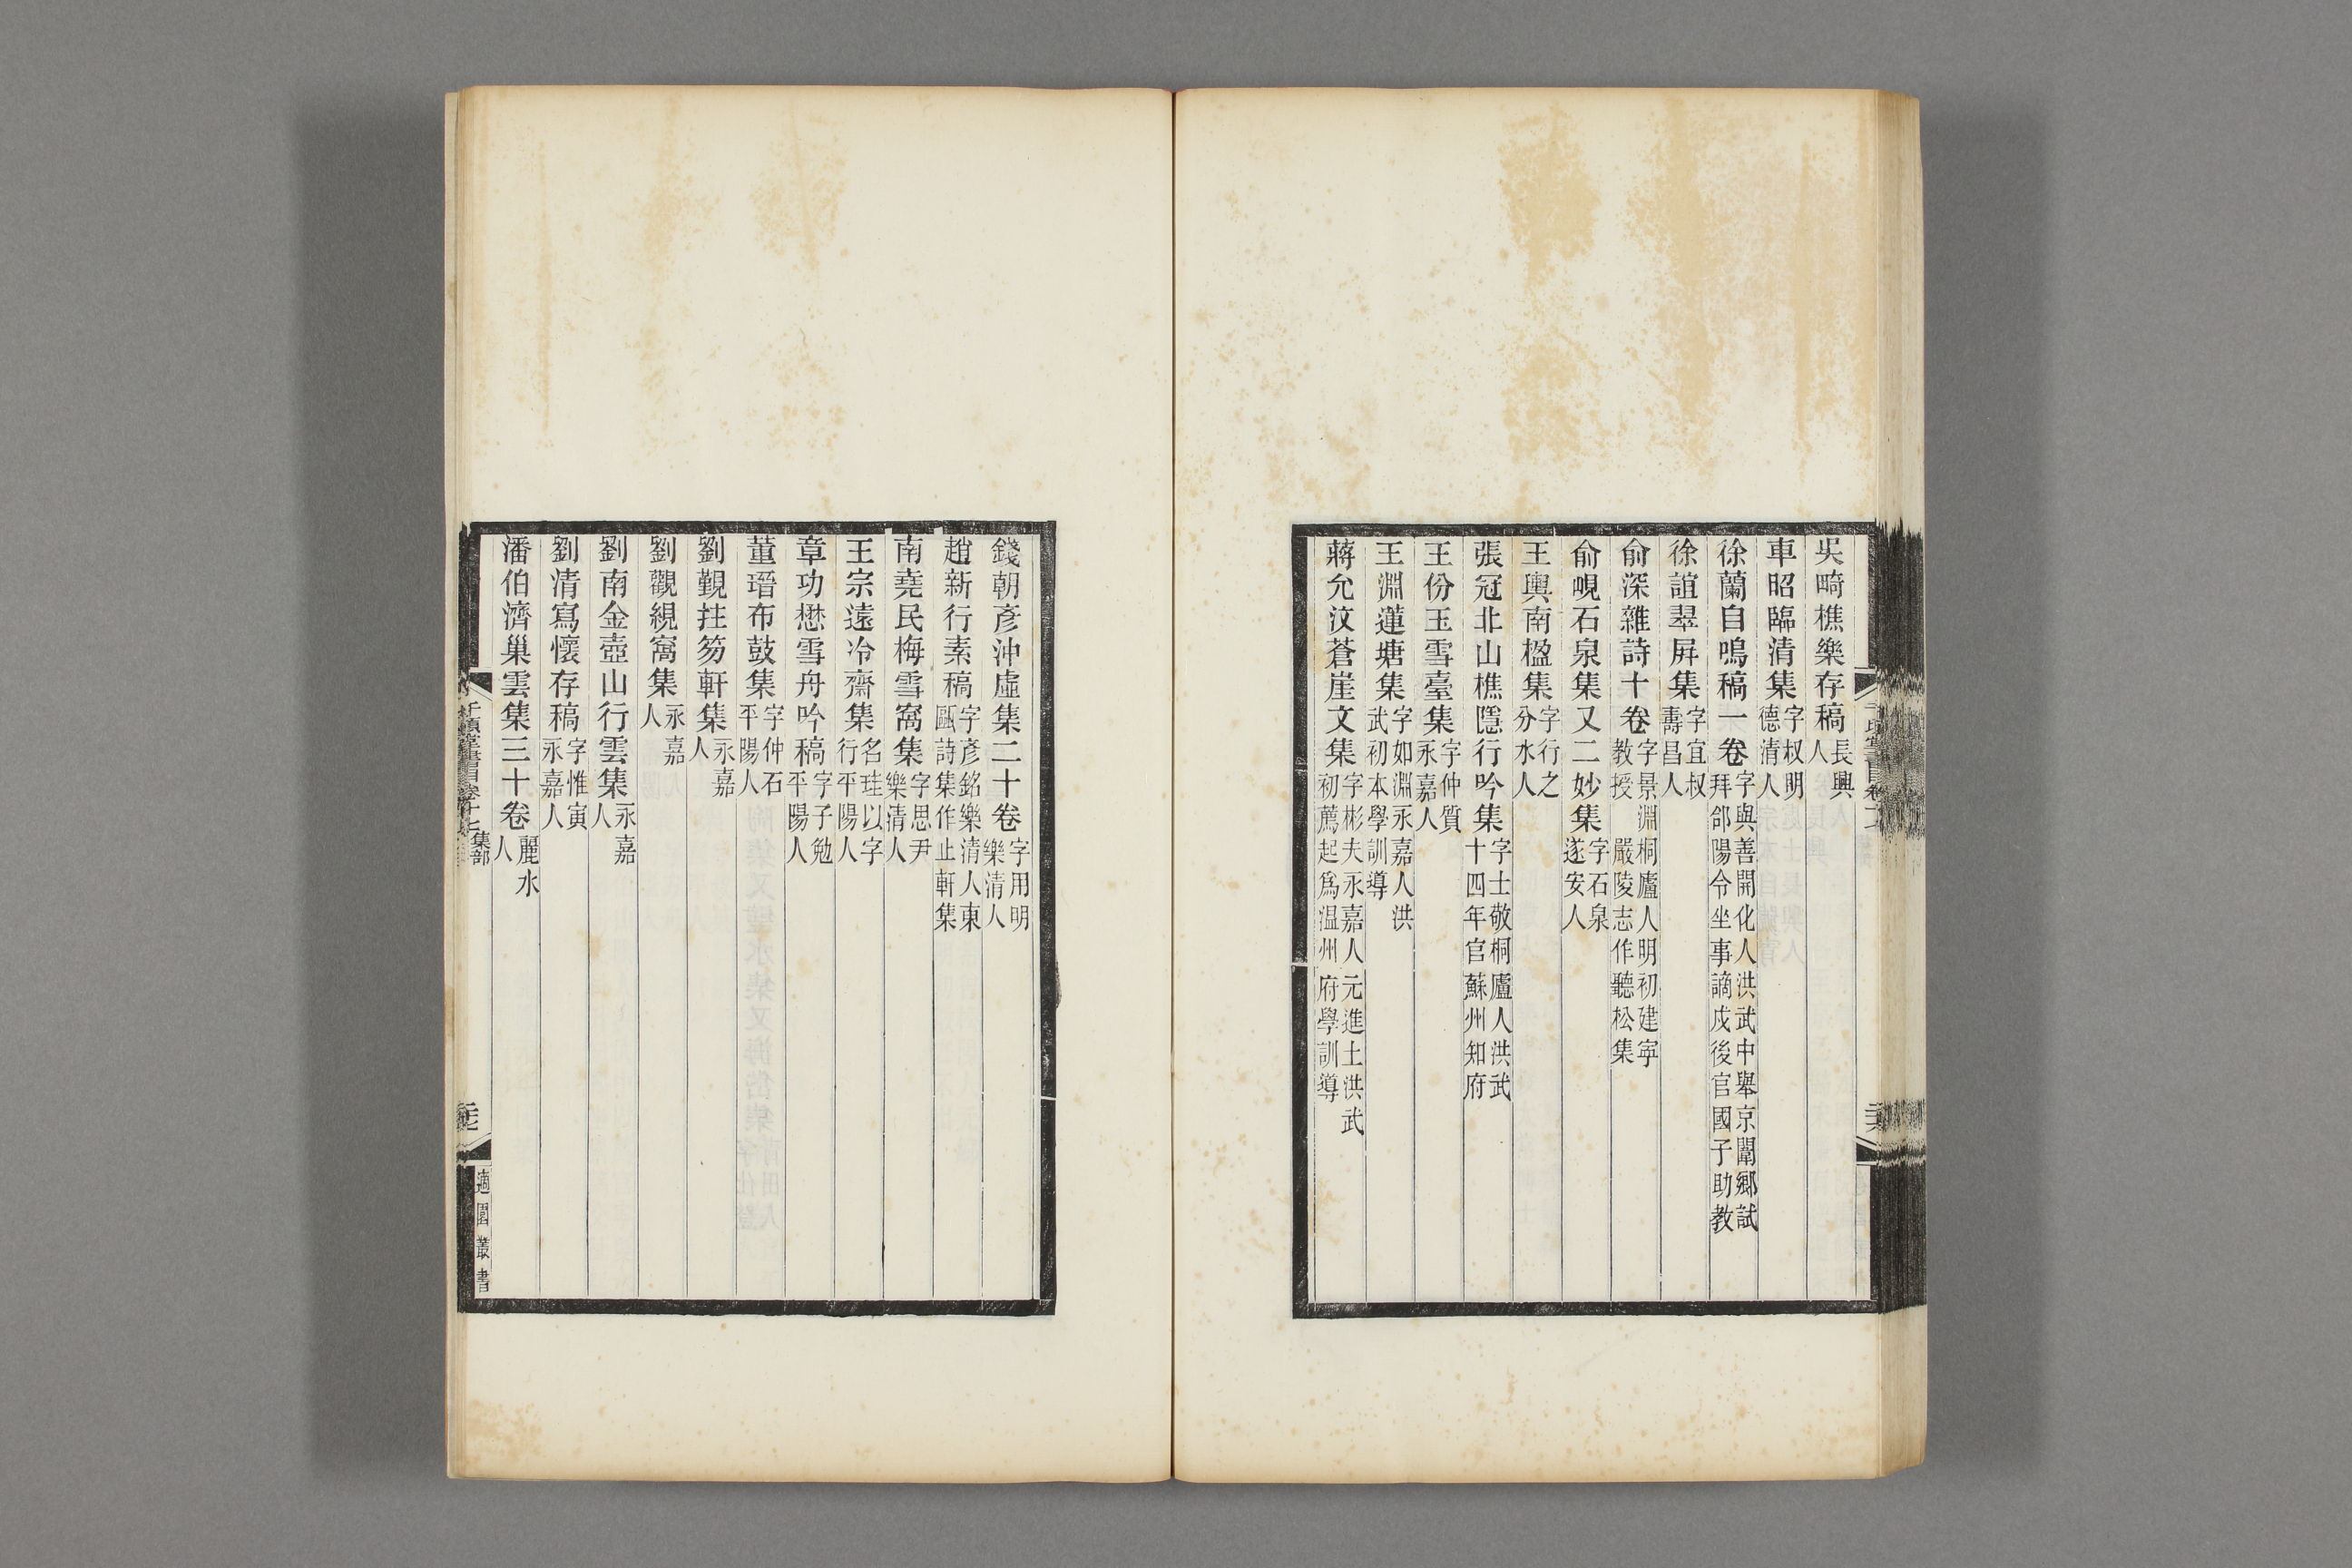 吳畸樵樂存稿長興人
車昭臨清集字权明德清人
徐蘭自鳴稿一卷字與善開化人洪武中舉京闈鄉試拜郃陽令坐事謫戍後官國子助教
徐誼翠屏集字宜叔壽昌人
俞深雜詩十卷字景淵桐廬人明初建寧教授 嚴陵志作聽松集
俞睍石泉集又二妙集字石泉遂安人
王輿南楹集字行之分水人
張冠北山樵隱行吟集字士敬桐廬人洪武十四年官蘇州知府
王份玉雪臺集字仲質永嘉人
王淵蓮塘集字如淵永嘉人洪武初本學訓導
蔣允汶蒼崖文集字彬夫永嘉人元進士洪武初薦起爲温州府學訓導
錢朝彥沖虛集二十卷字用明樂清人
趙新行素稿字彥銘樂清人東甌詩集作止軒集
南堯民梅雪窩集字思尹樂清人
王宗遠冷齋集名珪以字行平陽人
章功懋雪舟吟稿字子勉平陽人
董瑨布鼓集字仲石平陽人
劉覲拄笏軒集永嘉人
劉觀綥窩集永嘉人
劉南金壺山行雲集永嘉人
劉清寫懷存稿字惟寅永嘉人
潘伯濟巢雲集三十卷麗水人
千頃堂書目卷十七 集部
適園叢書